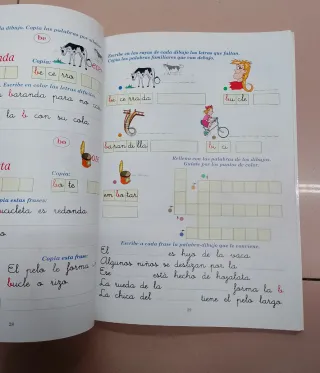 dibujo. Copia las palabras
be
Copia:
be ce rro
Escribe en color las letras del dibujo
baranda para no ca
la b con su cola
be
Copia:
bo te
Copia estas frases:
bucicleta es redonda
Copia esta frase:
El pelo le forma
bucle o rizo
20
Escribe en las rayas de cada dibujo las letras que faltan.
Copia las palabras familiares que son dibujo.
be ce rra da
bu cle
ba ran di lla
bi ci
em bo tar
Rellena con las palabras de los dibujos.
Guíate por los puntos de color.
Escribe a cada frase la palabra-dibujo que le conviene.
El es hijo de la vaca
Algunos niños se deslizan por la
Ese está hecho de hojalata
La rueda de la forma la b
La chica del tiene el pelo largo
21